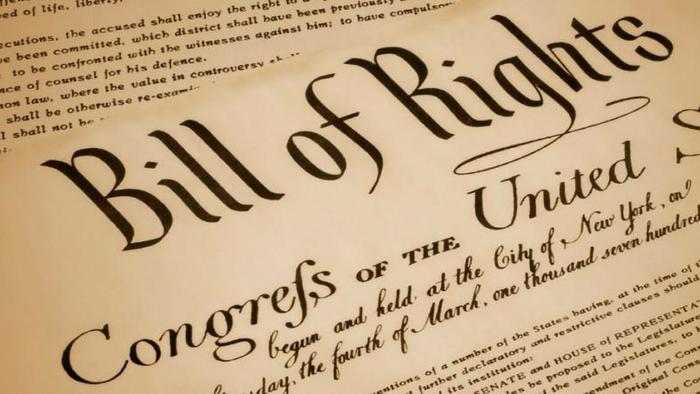 ed of life, liberty,
ecutions, the accused shall enjoy the right to a
been committed, which district shall have been previously
to be confronted with the witnesses against him; to have compulsor
nce of counsel for his defence.
on law, where the value in controversy
shall be otherwise re-exami
l shall not be
Bill of Rights
Congreſs OF THE United S
begun and held at the City of New York, on
day, the fourth of March, one thousand seven hundred
entions of a number of the States having, at the time of
further declaratory and restrictive clauses should
its institution:
SENATE and HOUSE of REPRESENTA
be proposed to the Legislature
the said Legislatures, to
endment of the Con
Original Con